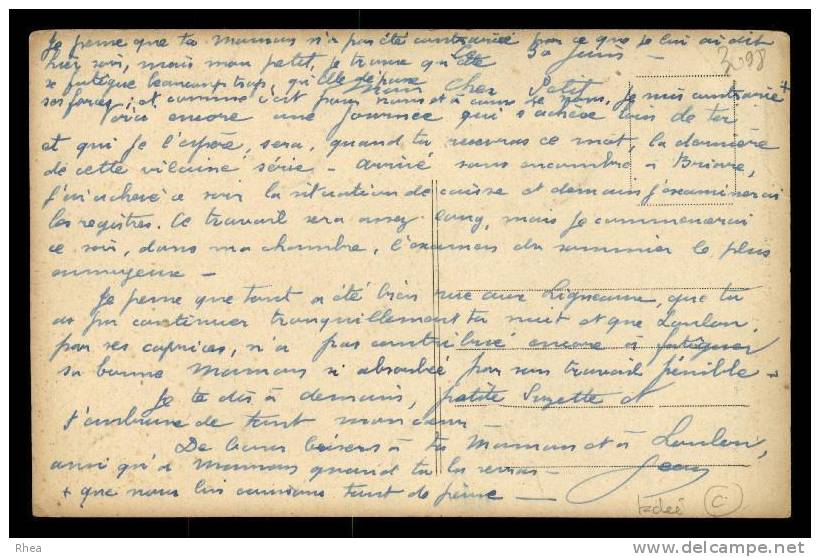 Je pense que ta maman n'a pas été contrariée par ce que je lui ai dit
hier soir, mais mon petit, je trouve qu'elle
30 Juin -
3098
se fatigue beaucoup trop, qu'elle dépense
Mon Cher Petit
ses forces, et comme c'est pour nous et à cause de nous, je suis contrarié +
Voici encore une journée qui s'achève loin de toi
et qui je l'espère, sera, quand tu recevras ce mot, la dernière
de cette vilaine série - arrivé sans encombre à Briare,
j'ai achevé ce soir la situation de caisse et demain j'examinerai
les registres. Ce travail sera assez long, mais je commencerai
ce soir, dans ma chambre, l'examen du sommier le plus
ennuyeux -
Je pense que tout a été bien rue aux Ligneaux, que tu
as pu continuer tranquillement ta nuit et que Loulou,
par ses caprices, n'a pas contribué encore à fatiguer
sa bonne Maman si absorbée par son travail pénible -
Je te dis à demain, petite Suzette et
t'embrasse de tout mon cœur
De bons baisers à ta Maman et à Loulou,
ainsi qu'à Maman quand tu la verras -
Jean
+ que nous lui causions tant de peine -
C
Rhea
delcampe.net